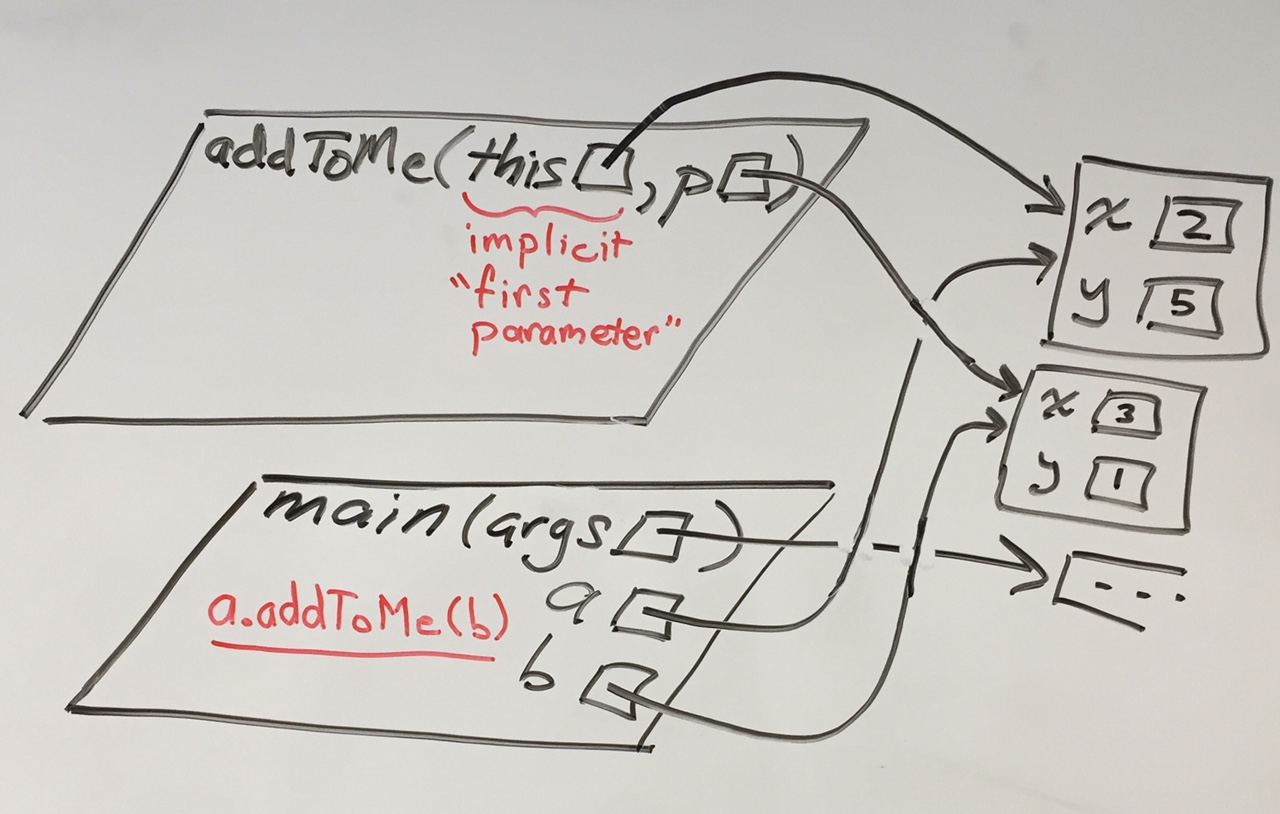 addToMe(this, p)
implicit
"first
parameter"
x 2
y 5
x 3
y 1
main(args)
a
a.addToMe(b)
b
...